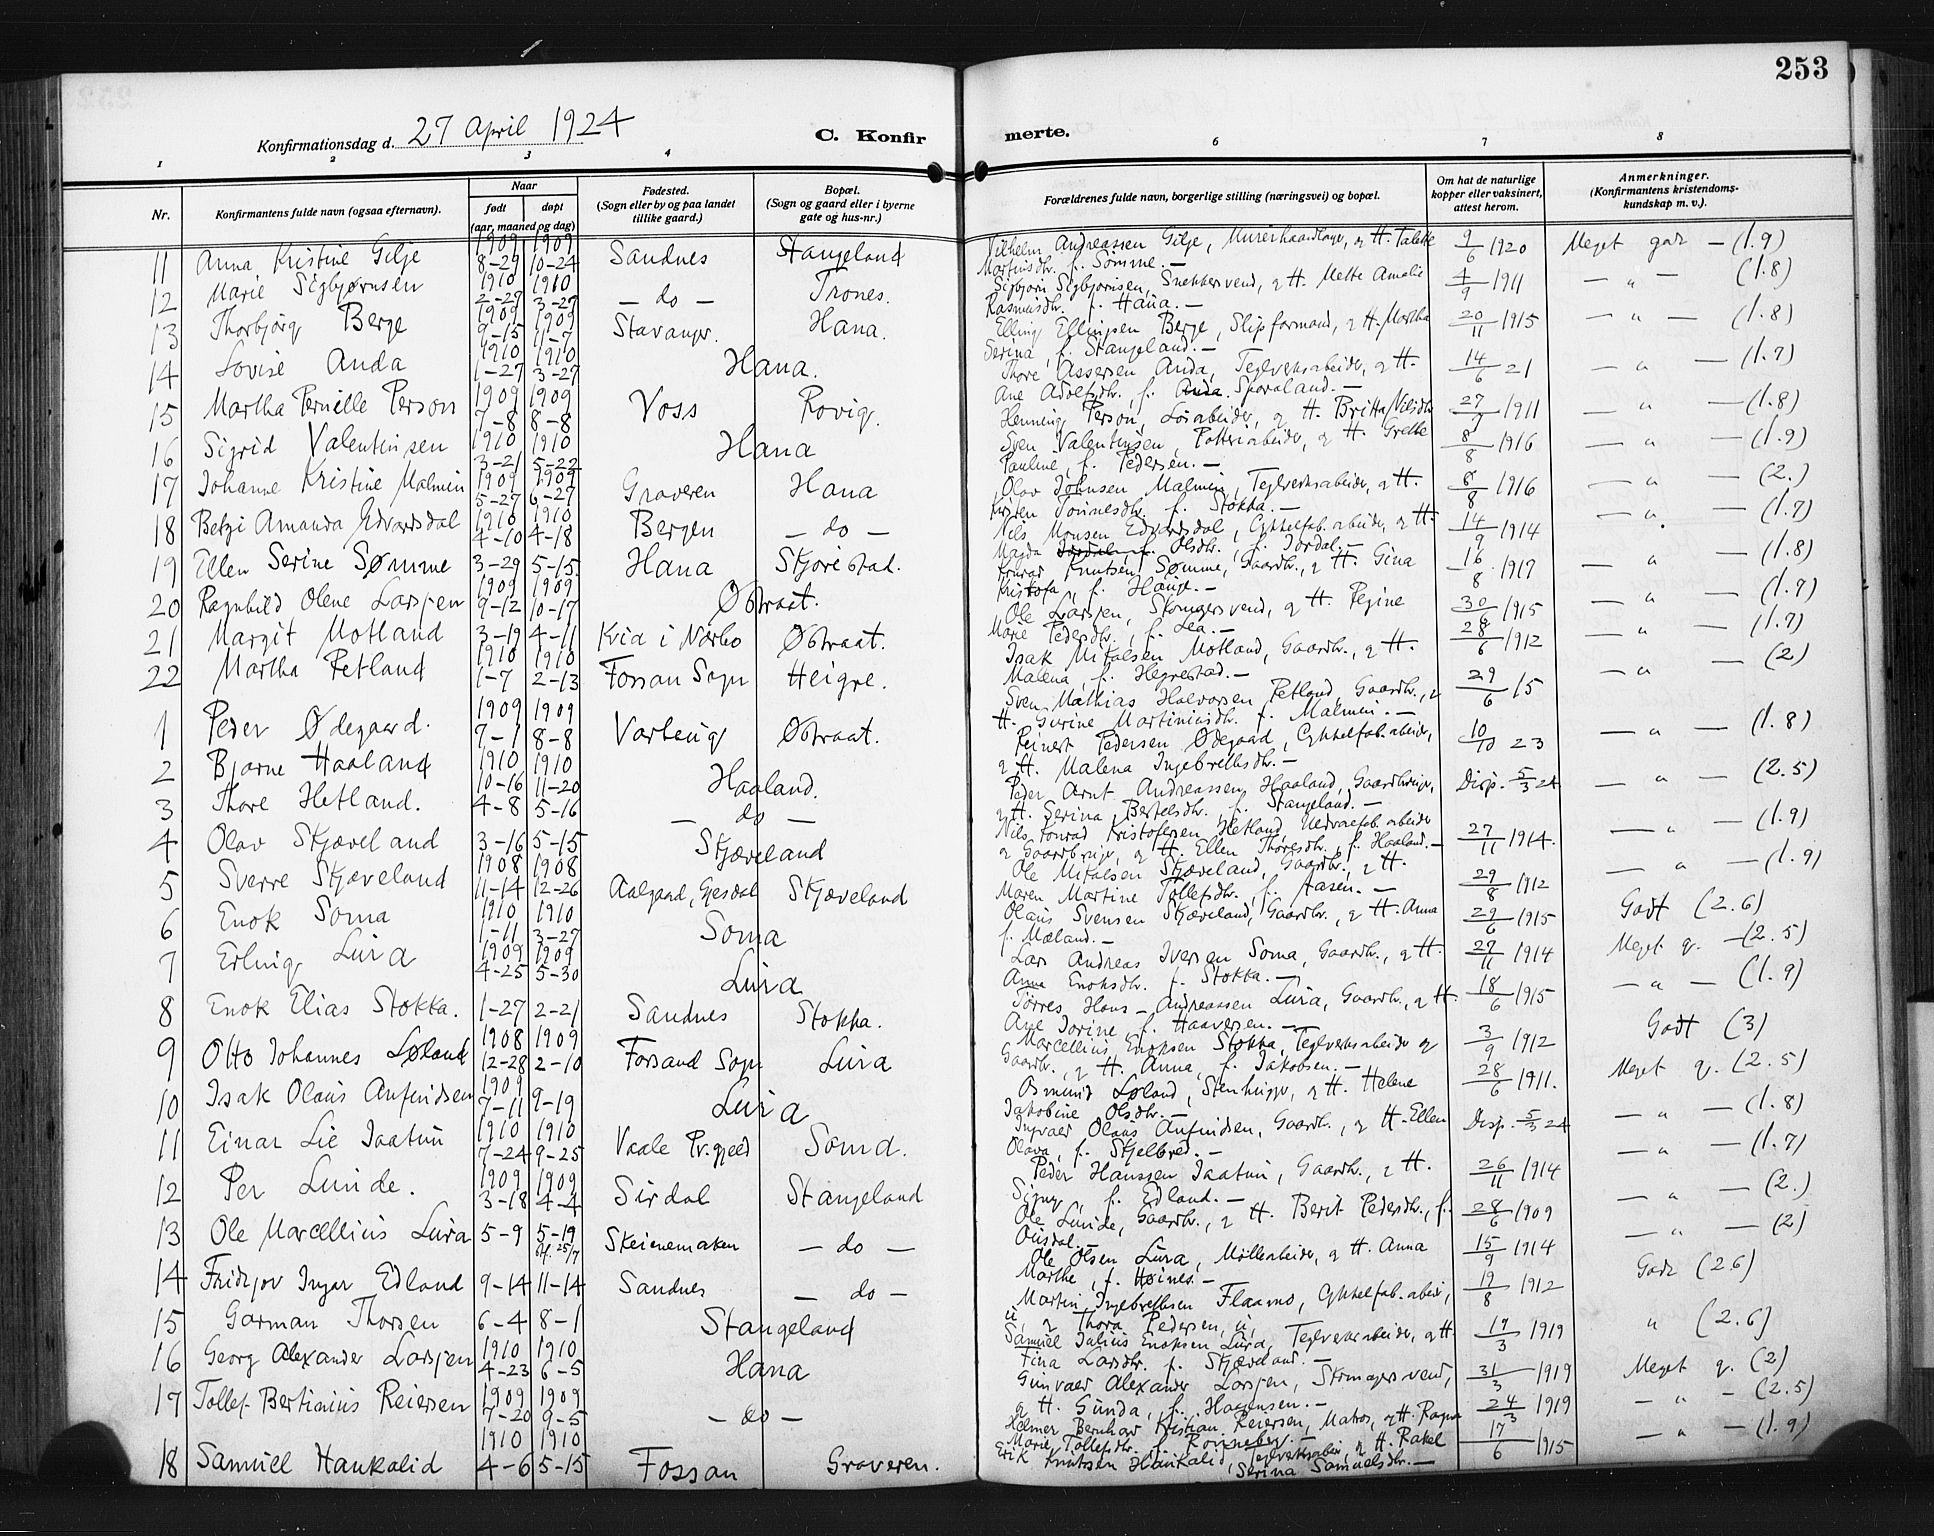 253
Konfirmationsdag d. 27 April 1924
C. Konfirmerte.
1 2 3 4 5 6 7 8
Nr.
Konfirmantens fulde navn (ogsaa efternavn).
Naar
født døpt
(aar, maaned og dag)
Fødested.
(Sogn eller by og paa landet
tillike gaard.)
Bopæl.
(Sogn og gaard eller i byerne
gate og hus-nr.)
Forældrenes fulde navn, borgerlige stilling (næringsvei) og bopæl.
Om hat de naturlige
kopper eller vaksinert,
attest herom.
Anmerkninger.
(Konfirmantens kristendoms-
kundskap m. v.).
11 Anna Kristine Gilje 1909 8-29 1909 10-24 Sandnes Stangeland Vilhelm Andreassen Gilje, Murerhaandlager, og H. Talette 9/6 1920 Meget godt - (1.9)
Martinsdtr. f. Sømme. -
12 Marie Sigbjørnsen 1910 2-27 1910 3-27 - do - Trones. Sigbjørn Sigbjørnsen, Snekkersvend, og H. Mette Amalie 4/9 1911 - " - (1.8)
Rasmusdtr. f. Hana. -
13 Thorbjørg Berge 1909 9-15 1909 11-7 Stavanger. Hana. Elling Ellingsen Berge, Slipformand, og H. Martha 20/11 1915 - " - (1.8)
Serina, f. Stangeland. -
14 Lovise Anda 1910 1-27 1910 3-27 Hana. Thore Assersen Anda, Teglverksarbeider, og H. 14/6 21 - " - (1.7)
Ane Adolfsdtr., f. Sporaland. -
15 Martha Pernille Person 1909 7-8 1909 8-8 Voss Rovig. Henning Person, Løsarbeider, og H. Britta Nilsdtr 27/7 1911 - " - (1.8)
16 Sigrid Valentinsen 1910 3-21 1910 5-22 Hana Sven Valentinsen, Potteriarbeider, og H. Grethe 8/8 1916 - " - (1.9)
Pauline, f. Pedersen. -
17 Johanne Kristine Malmin 1909 5-27 1909 6-27 Graveren Hana Olav Johnsen Malmin, Teglverksarbeider, og H. 8/8 1916 - " - (2.)
Kirsten Tønnesdtr. f. Stokka. -
18 Betzi Amanda Edvardsdal 1910 4-10 1910 4-18 Bergen - do - Nils Monsen Edvardsdal, Cykkelfab.arbeider, og H. 14/9 1914 - " . (1.7)
Magda Olsdtr., f. Jordal. -
19 Ellen Serine Sømme 3-29 5-15 Hana Skjørestad. Konrad Knutsen Sømme, Gaardbr., og H. Gina 16/8 1917 - " - (1.8)
Kristofa, f. Hauge. -
20 Ragnhild Olene Larsen 1909 9-12 1909 10-17 Østraat. Ole Larsen, Skomagersvend, og H. Regine 30/6 1915 - " - (1.7)
Marie Pedersdtr., f. Lea. -
21 Margit Motland 3-19 4-11 Kvia i Nærbo Østraat. Isak Mikalsen Motland, Gaardbr., og H. 28/6 1912 - " - (1.7)
Malena f. Hegrestad. -
22 Martha Retland 1910 1-7 1910 2-13 Fossan Sogn Heigre. Sven Mathias Halvorsen Retland, Gaardbr., og 29/6 15 - " - (2)
H. Gurine Martiniusdtr. f. Malmin. -
1 Peder Ødegaard. 1909 7-1 1909 8-8 Varteig Østraat. Reinert Pedersen Ødegaard, Cykkelfab.arbeider, 10/10 23 - " - (1.8)
og H. Malena Ingebretsdtr. -
2 Bjarne Haaland 1910 10-16 1910 11-20 Haaland. Peder Arnt Andreassen Haaland, Gaardbruger, Disp. 5/3 24 - " - (2.5)
og H. Serina Bertelsdtr. f. Stangeland. -
3 Thore Hetland. 4-8 5-16 - do - Nils Konrad Kristofersen Hetland, Uldvarefab.arbeider 27/11 1914. - " - (1.9)
og Gaardbruger, og H. Ellen Thoresdtr., f. Haaland. -
4 Olav Skjæveland 3-16 5-15 Skjæveland Ole Mikalsen Skjæveland, Gaardbr., og H. 29/8 1912 - " - (1.9)
Maren Martine Tollefsdtr., f. Aasen. -
5 Sverre Skjæveland 1908 11-14 1908 12-26 Aalgaard, Gjesdal Skjæveland Olaus Svensen Skjæveland, Gaardbr., og H. Anna 29/6 1915 Godt (2.6)
f. Mæland. -
6 Enok Soma 1910 1-11 1910 3-27 Soma Lars Andreas Iversen Soma, Gaardbr., og H. 27/11 1914 Meget g. - (2.5)
Anna Enoksdtr. f. Stokka. -
7 Erling Lura 1909 4-25 1909 5-30 Lura Tørres Hans-Andreassen Lura, Gaardbr., og H. 18/6 1915 - " - (1.9)
Ane Jorine, f. Haaversen. -
8 Enok Elias Stokka. 1-27 2-21 Sandnes Stokka. Marcellius Enoksen Stokka, Teglverksarbeider og 3/9 1912 Godt (3)
Gaardbr., og H. Anna, f. Jakobsen. -
9 Otto Johannes Løland 1908 12-28 1909 2-10 Forsand Sogn Lura Osmund Løland, Stenhugger, og H. Helene 28/6 1911. Meget g. (2.5)
Jakobine Olsdtr. -
10 Isak Olaus Anfindsen 1909 7-11 9-19 Lura Ingvald Olaus Anfindsen, Gaardbr., og H. Ellen Disp. 5/3 24 - " - (1.8)
Olava, f. Skjelbred. -
11 Einar Lie Jaatun 1910 7-24 1910 9-25 Vaale Pr.gjeld Soma. Peder Hanssen Jaatun, Gaardbr., og H. 26/11 1914 - " - (1.7)
Signe, f. Edland. -
12 Per Lunde. 1909 3-18 1909 4-4 Sirdal Stangeland Ole Lunde, Gaardbr., og H. Berit Pedersdtr., f. 28/6 1909 - " - (2.)
Ousdal. -
13 Ole Marcellius Lura 5-9 5-19 Skeienemarken - do - Ole Olsen Lura, Møllearbeider, og H. Anna 15/9 1914 - " - (2)
Marthe, f. Høines. -
14 Fridtjov Ingar Edland 9-14 11-14 Sandnes - do - Martin Ingebretsen Flaamo, Cykkelfab.arbeider, 19/8 1912 Godt (2.6)
u, og Thora Pedersen, u,
15 Garman Thorsen 6-4 8-1 Stangeland Samuel Julius Enoksen Lura, Teglverksarbeider, og H. 19/3 1919 " (2.6)
Tina Larsdtr. f. Skjæveland. -
16 Georg Alexander Larsen 1910 4-23 1910 6-5 Hana Gunvald Alexander Larsen, Skomagersvend, 31/3 1919 Meget g. (2)
og H. Gunda, f. Haavensen. -
17 Tollef Bertinius Reiersen 1909 7-20 1909 9-5 - do - Helmer Bernhard Kristian Reiersen, Matros, og H. Ragna 24/3 1919 - " - (2.5)
Marie Tollefsdtr. f. Rønneberg. -
18 Samuel Haukalid 1910 4-6 1910 5-15 Fossan Graveren. Erik Knutsen Haukalid, Teglverksarbeider, og H. Rakel 17/6 1915 - " - (1.9)
Serina Samuelsdtr. -